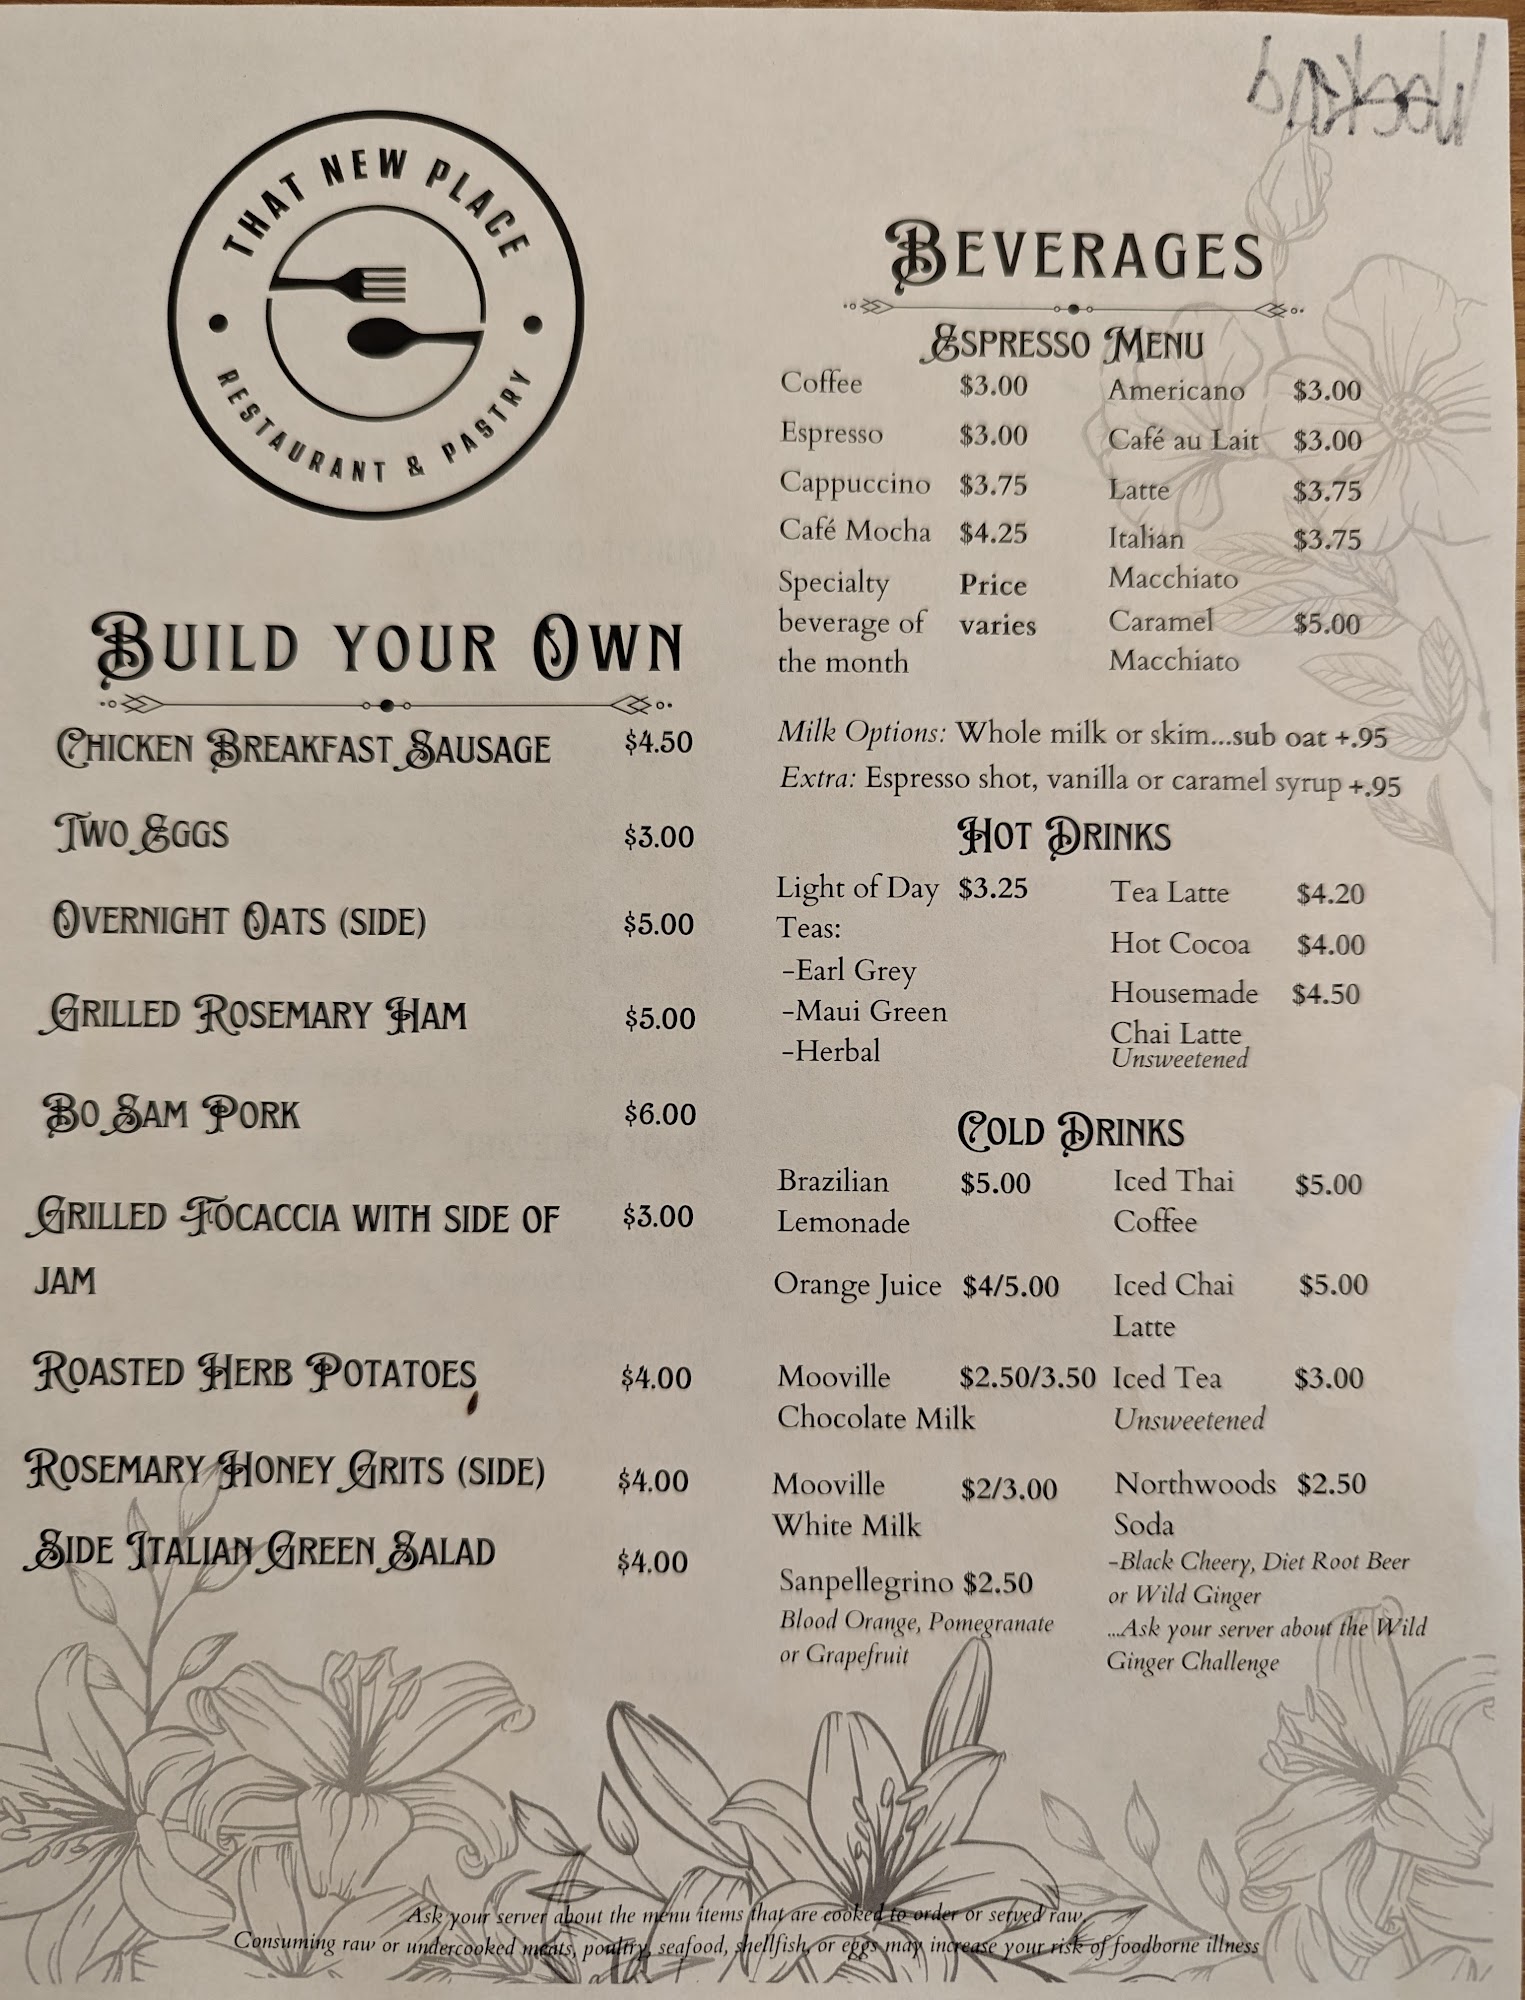 Weekend
THAT NEW PLACE
RESTAURANT & PASTRY
BUILD YOUR OWN
CHICKEN BREAKFAST SAUSAGE $4.50
TWO EGGS $3.00
OVERNIGHT OATS (SIDE) $5.00
GRILLED ROSEMARY HAM $5.00
BO SAM PORK $6.00
GRILLED FOCACCIA WITH SIDE OF $3.00
JAM
ROASTED HERB POTATOES $4.00
ROSEMARY HONEY GRITS (SIDE) $4.00
SIDE ITALIAN GREEN SALAD $4.00
BEVERAGES
ESPRESSO MENU
Coffee $3.00
Espresso $3.00
Cappuccino $3.75
Café Mocha $4.25
Specialty Price
beverage of varies
the month
Americano $3.00
Café au Lait $3.00
Latte $3.75
Italian $3.75
Macchiato
Caramel $5.00
Macchiato
Milk Options: Whole milk or skim...sub oat +.95
Extra: Espresso shot, vanilla or caramel syrup +.95
HOT DRINKS
Light of Day $3.25
Teas:
-Earl Grey
-Maui Green
-Herbal
Tea Latte $4.20
Hot Cocoa $4.00
Housemade $4.50
Chai Latte
Unsweetened
COLD DRINKS
Brazilian $5.00
Lemonade
Orange Juice $4/5.00
Mooville $2.50/3.50
Chocolate Milk
Mooville $2/3.00
White Milk
Sanpellegrino $2.50
Blood Orange, Pomegranate
or Grapefruit
Iced Thai $5.00
Coffee
Iced Chai $5.00
Latte
Iced Tea $3.00
Unsweetened
Northwoods $2.50
Soda
-Black Cheery, Diet Root Beer
or Wild Ginger
...Ask your server about the Wild
Ginger Challenge
Ask your server about the menu items that are cooked to order or served raw.
Consuming raw or undercooked meats, poultry, seafood, shellfish, or eggs may increase your risk of foodborne illness